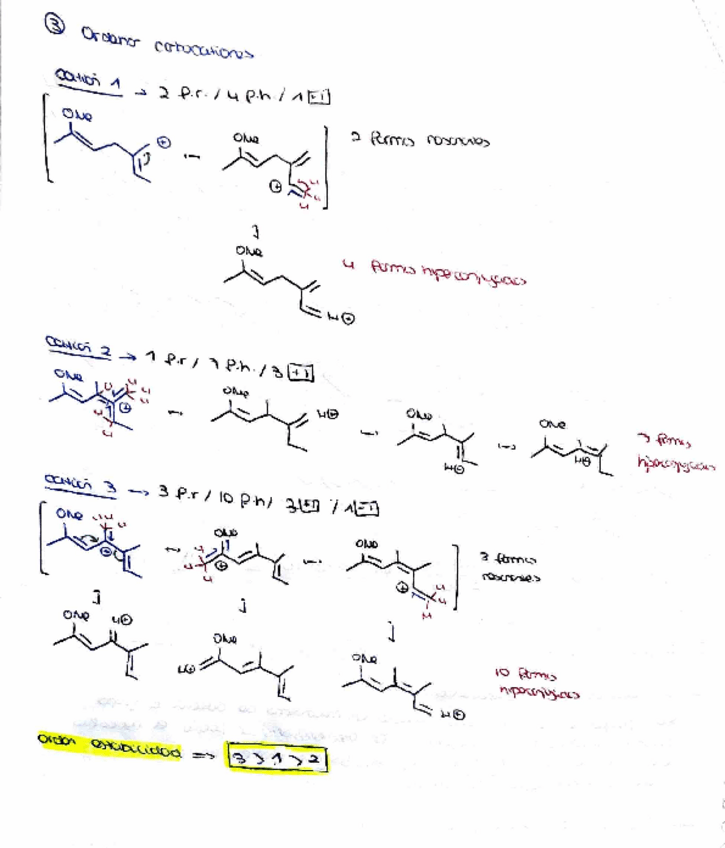 ③ Ordenar carbocationes
Catión 1 → 2 f.r. / 4 f.h. / 1 +I
OMe
⊕
OMe
⊕
H
H
H
2 formas resonantes
OMe
H⊕
4 formas hiperconjugadas
Catión 2 → 1 f.r / 7 f.h. / 3 +I
OMe
H
H
H
H
⊕
H
H
OMe
H⊕
OMe
H⊕
OMe
H⊕
7 formas
hiperconjugadas
Catión 3 → 3 f.r / 10 f.h / 3 +I / 1 -I
OMe
H
H
H
⊕
OMe
H
H
H
⊕
OMe
⊕
H
H
H
3 formas
resonantes
OMe
H⊕
OMe
H⊕
OMe
H⊕
10 formas
hiperconjugadas
Orden estabilidad ⇒ 3 > 1 > 2